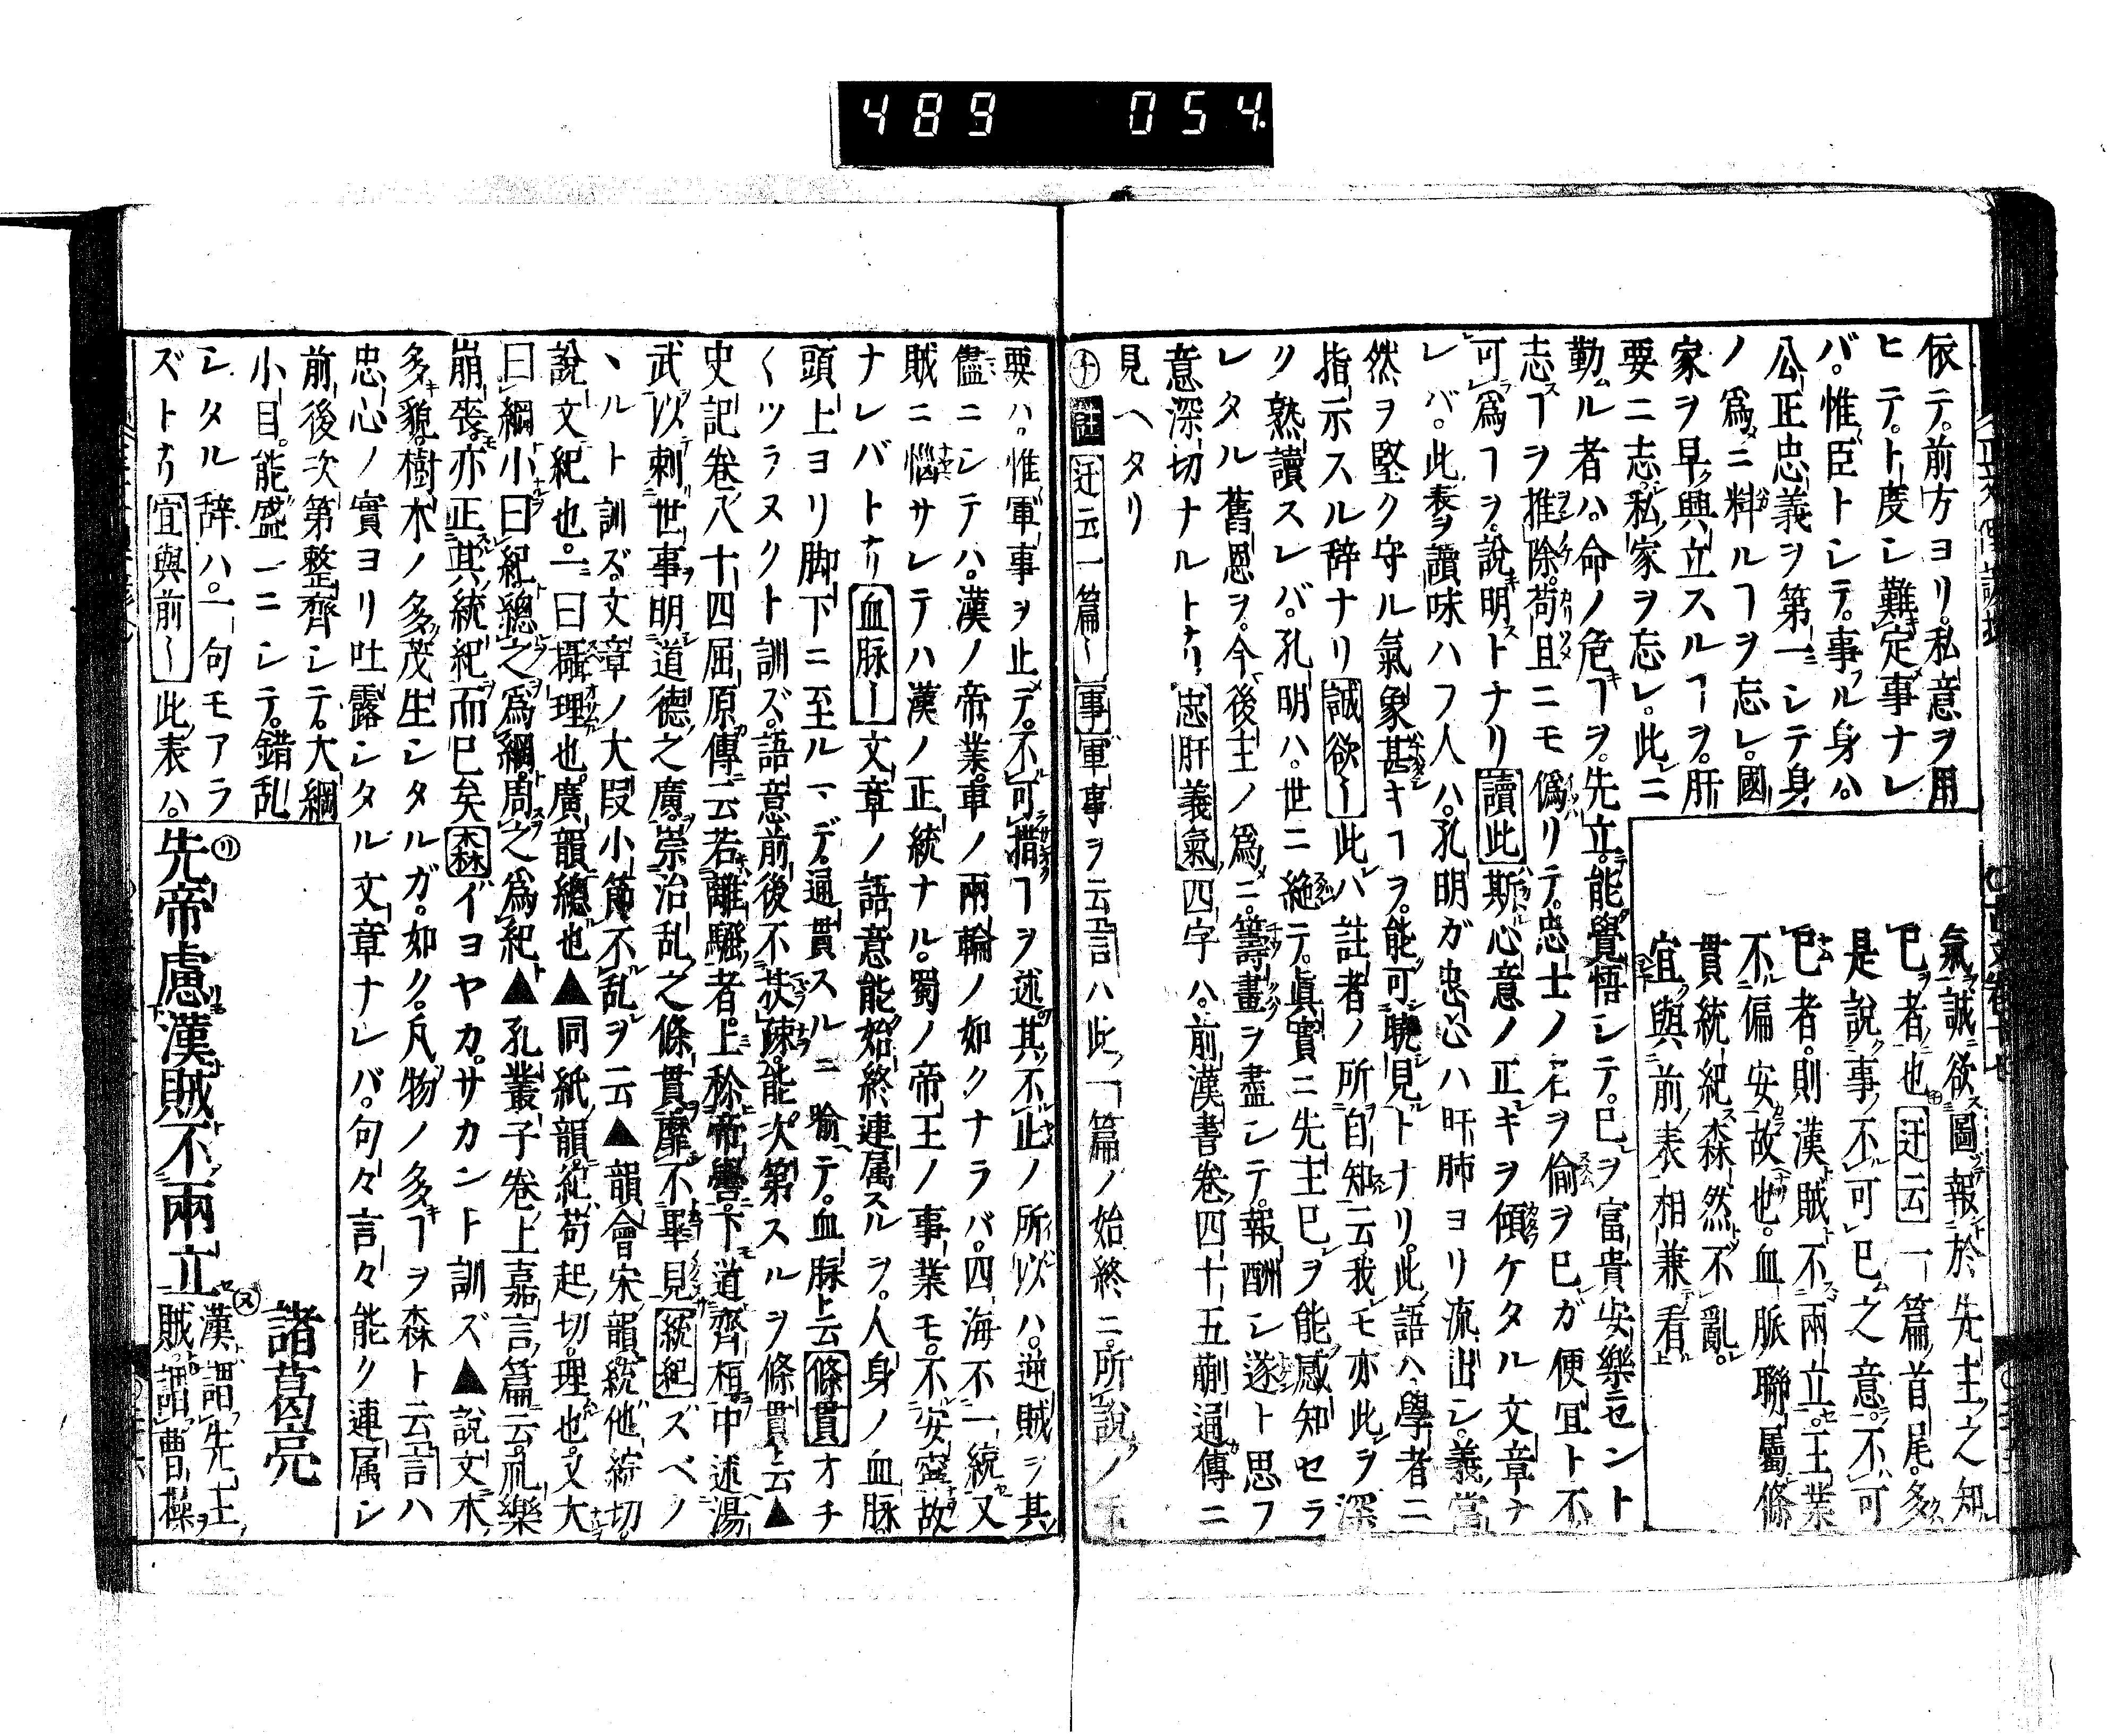 489 054
依テ。前方ヨリ。私意ヲ用
ヒテ。ト度シ難定事ナレ
バ。惟臣トシテ。事ル身ハ。
公正忠義ヲ第一ニシテ身
ノ爲ニ料ルヿヲ忘レ。國
家ヲ早興立スルヿヲ。肝
要ニ志。私家ヲ忘レ。此ニ
氣誠欲圖報於先主之知
已者也迂云一篇首尾。多
是說事不可已之意。不可
已者。則漢賊不兩立。王業
不偏安故也。血脈聯屬條
貫統紀森然不亂。
宜與前表相兼看
勤ル者ハ。命ノ危ヿヲ。先立。能覺悟シテ。已ヲ富貴安樂ニセント
志ヿヲ推除。苟且ニモ僞リテ。忠士ノ名ヲ偷ヲ已ガ便冝ト不
可爲ヿヲ。說明トナリ讀此斯心意ノ正キヲ傾ケタル文章ナ
レバ。此表ヲ讀味ハフ人ハ。孔明ガ忠心ハ肝肺ヨリ流出シ。義當
然ヲ堅ク守ル氣象甚キヿヲ。能可曉見トナリ。此語ハ學者ニ
指示スル辞ナリ誠欲〜此ハ註者ノ所自知云我モ亦此ヲ深
ク熟讀スレバ。孔明ハ。世ニ絶テ。眞實ニ先主已ヲ能感知セラ
レタル舊恩ヲ。今後主ノ爲ニ。籌畫ヲ盡シテ。報酬シ遂ト思フ
意深切ナルトナリ忠肝義氣四字ハ。前漢書卷四十五蒯通傳ニ
見ヘタリ
註迂云一篇〜事軍事ヲ云言ハ此一篇ノ始終ニ。所說ノ
要ハ。惟軍事ヲ止テ。不可措ヿヲ述其不止ノ所以ハ。逆賊ヲ其
儘ニシテハ。漢ノ帝業。車ノ兩輪ノ如クナラバ。四海不一統又
賊ニ惱サレテハ漢ノ正統ナル。蜀ノ帝王ノ事業モ。不安寧故
ナレバトナリ血脉〜文章ノ語意能始終連属スルヲ。人身ノ血脉。
頭上ヨリ脚下ニ至ルマデ。通貫スルニ喩テ。血脉ト云條貫オチ
〱ツラヌクト訓ズ。語意前後不扶疎。能次第スルヲ條貫ト云▲
史記卷八十四屈原傳云若離騷者。上稱帝嚳。下道齊桓。中述湯
武以刺世事明道德之廣崇治乱之條貫靡不畢見統紀ズベノ
ヽルト訓ズ。文章ノ大段小節不乱ヲ云▲韻會宋韻。統他綜切。
說文紀也。一曰攝理也。廣韻總也▲同紙韻。紀苟起切。理也。又大
曰綱小曰紀。總之爲綱。周之爲紀▲孔叢子卷上嘉言篇云。礼樂
崩喪。亦正其統紀而已矣森イヨヤカ。サカント訓ズ▲說文木
多貌。樹木ノ多茂生シタルガ。如ク。凡物ノ多キヿヲ森ト云言ハ
忠心ノ實ヨリ吐露シタル文章ナレバ。句々言々能ク連属シ
前後次第整齊シテ。大綱
小目。能盛ニシテ。錯乱
シタル辞ハ。一句モアラ
ズトナリ宜與前〜此表ハ。
諸葛亮
先帝慮漢賊不兩立漢謂先主
賊。謂曹操